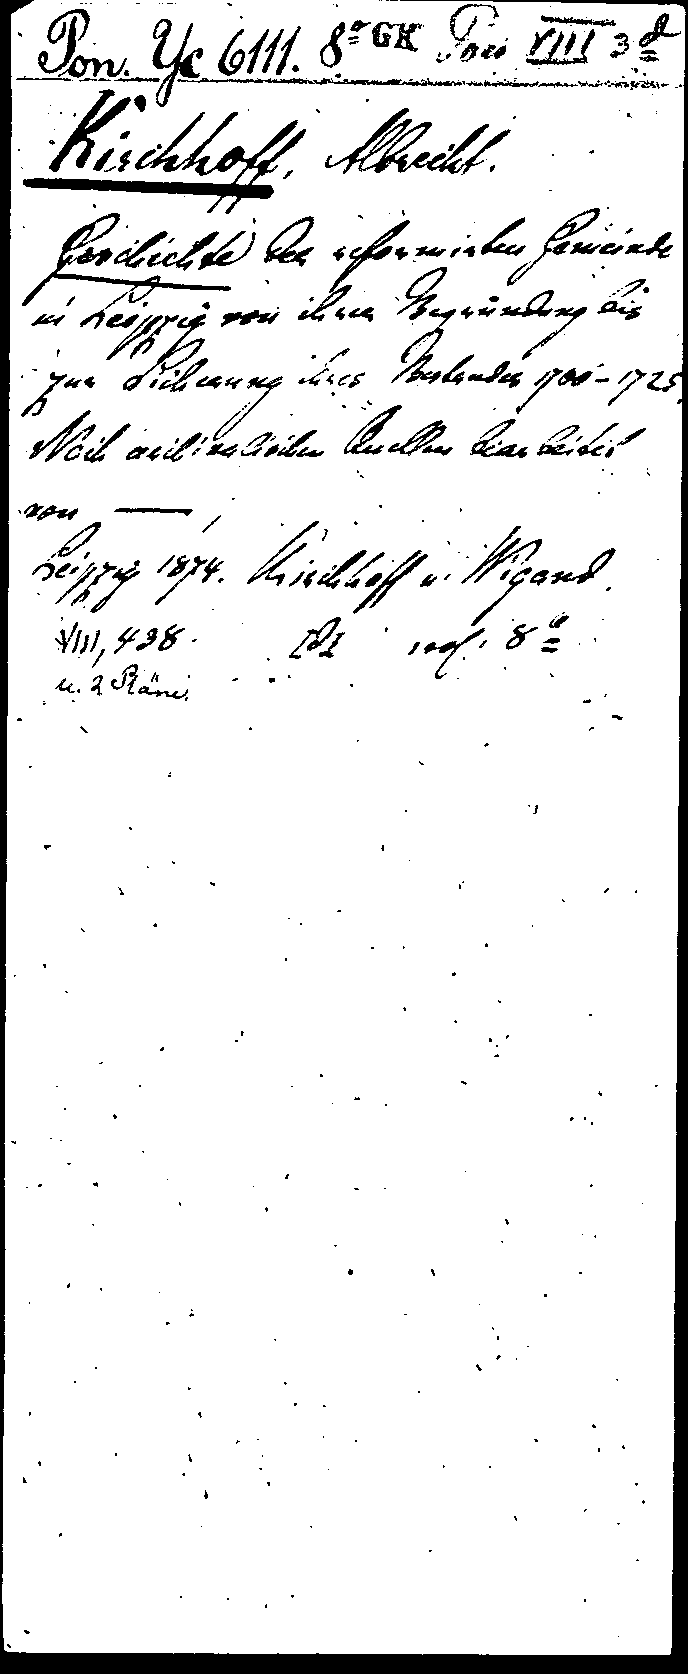 Pon. Yc 6111. 8º GK VIII 3 d
Kirchhoff, Albrecht.
Geschichte der reformirten Gemeinde
in Leipzig von ihrer Begründung bis
zur Sicherung ihres Bestandes 1700-1725.
Nach archivalischen Quellen bearbeitet
von ——,
Leipzig 1874. Kirchhoff u. Wigand.
VIII, 438. 8º
u. 2 Pläne.